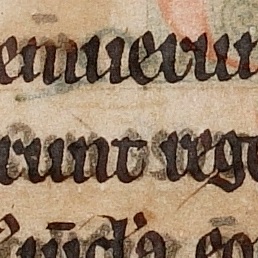 emuerun
runt rege